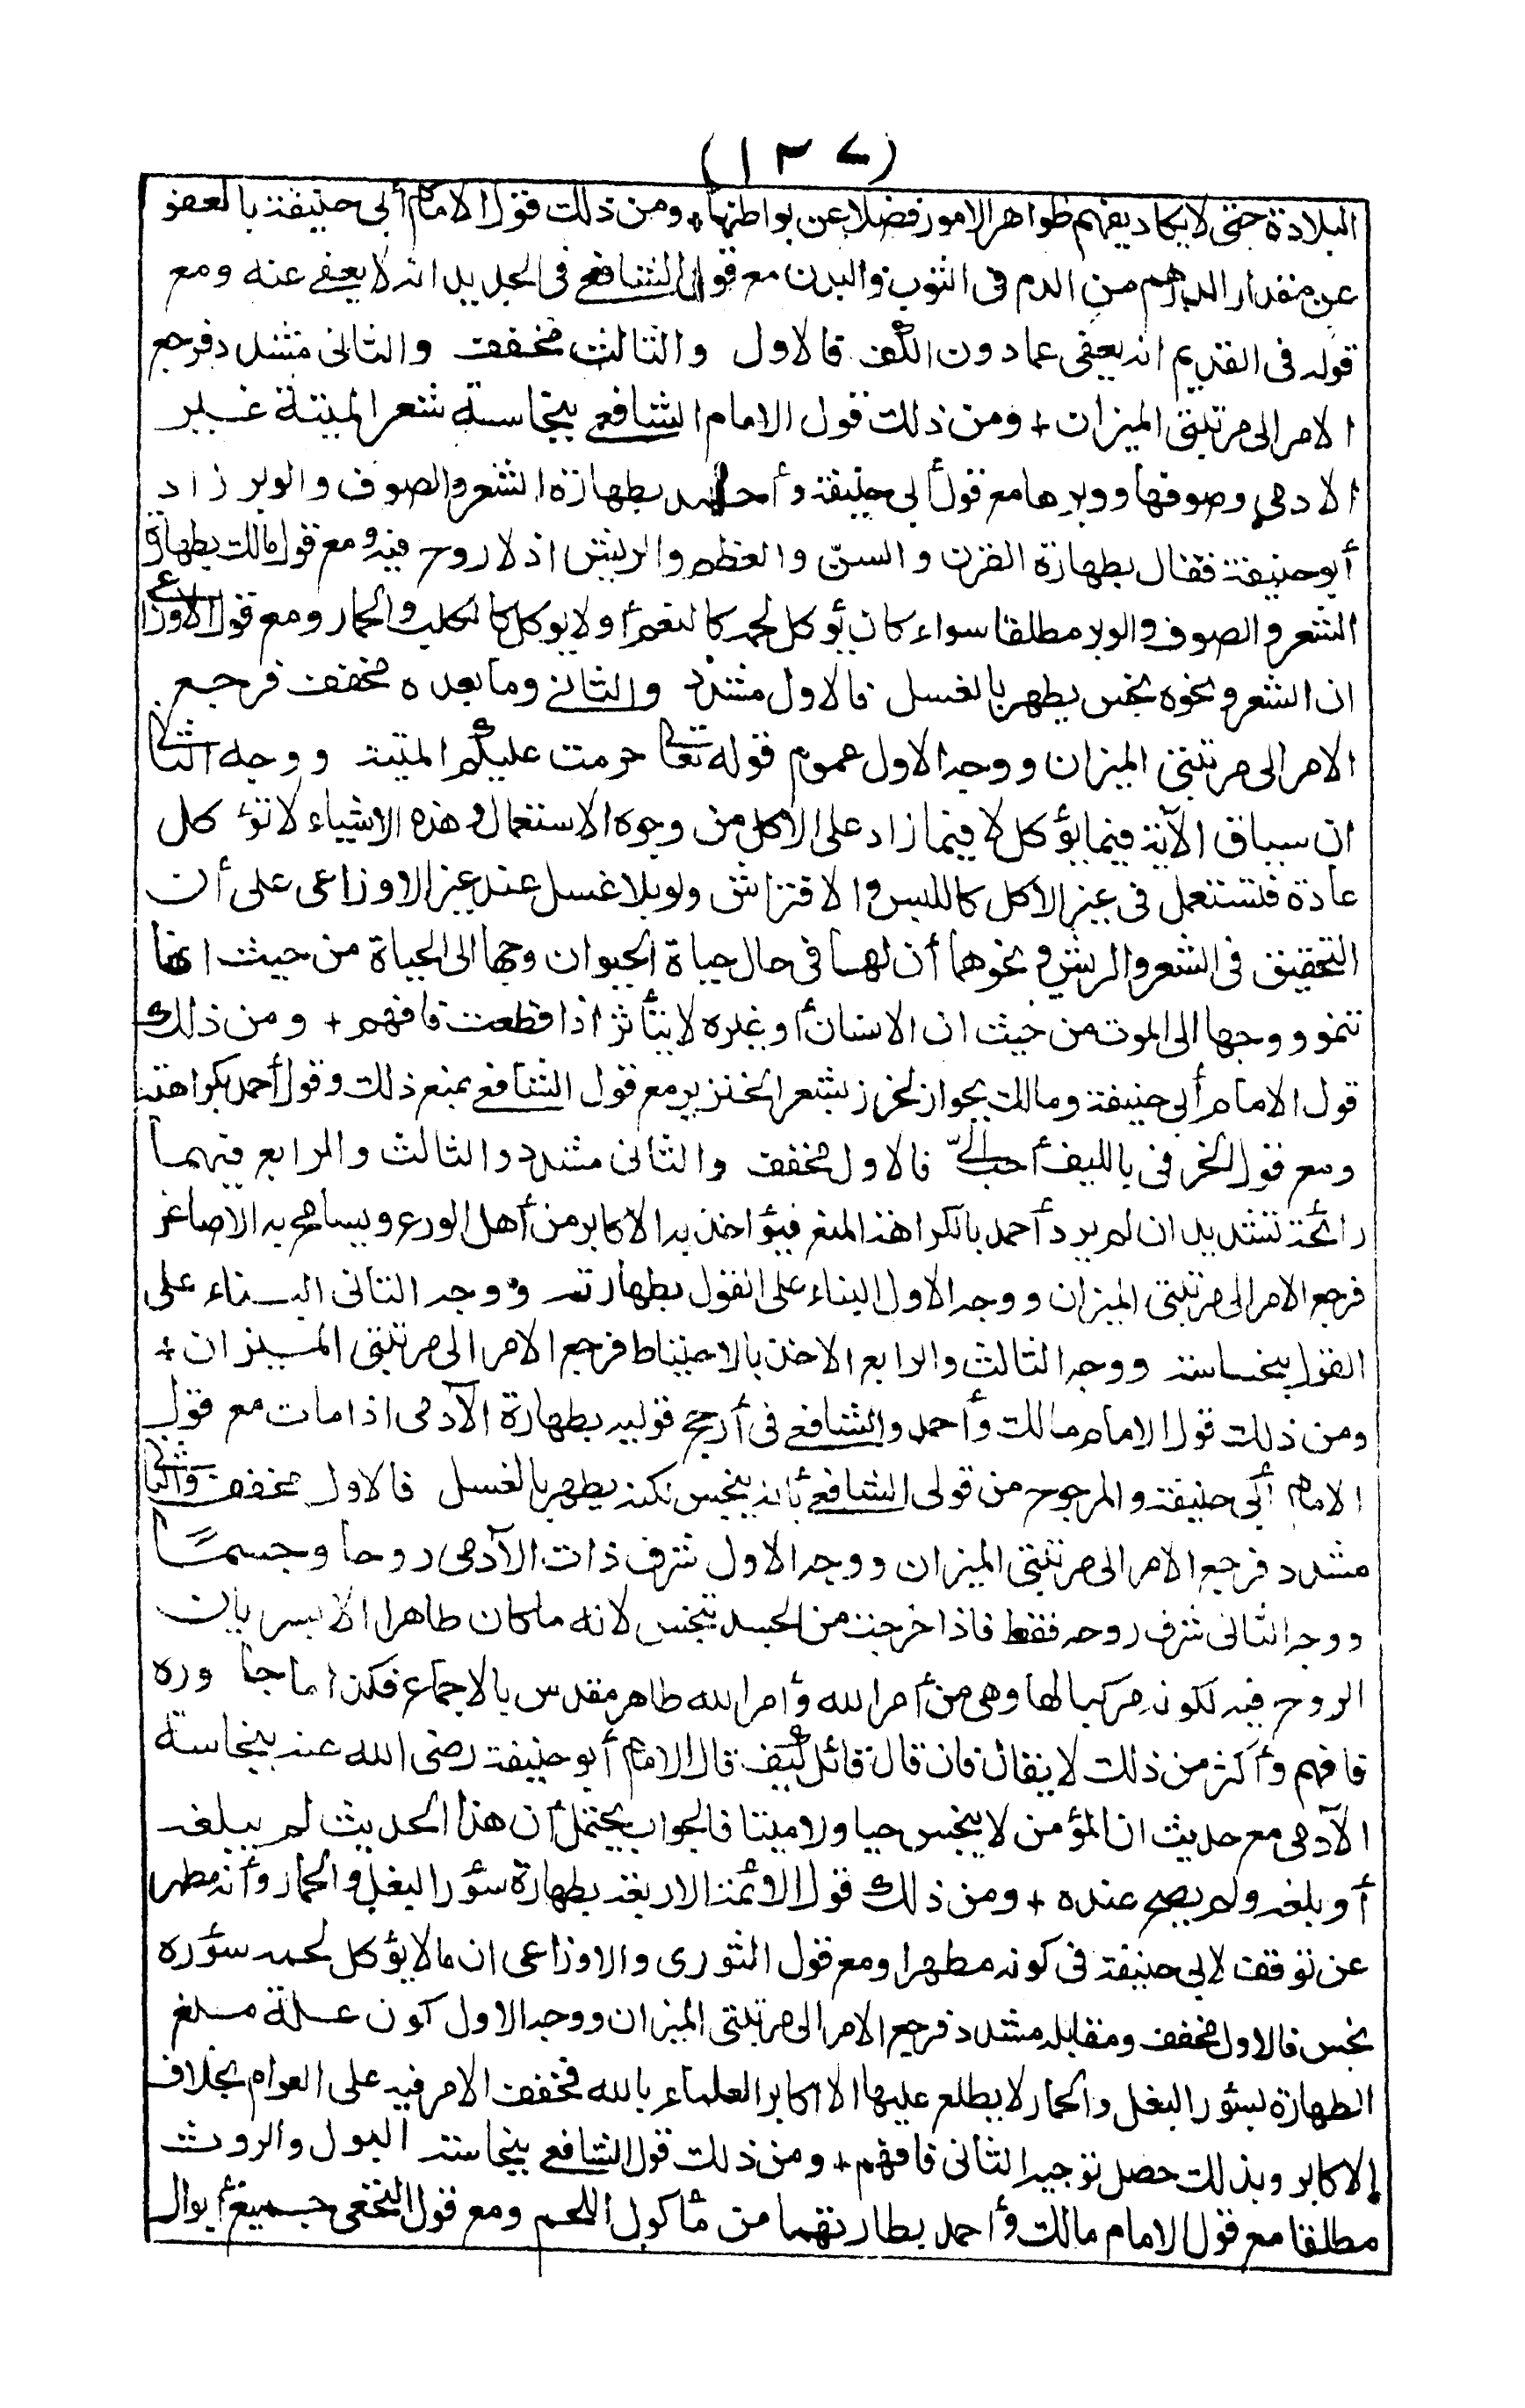 (١٣٧)
البلادة حتى لا يكاد يفهم ظواهر الامور فضلا عن بواطنها + ومن ذلك قول الامام أبي حنيفة بالعفو
عن مقدار الدرهم من الدم فى الثوب والبدن مع قول الشافعي فى الجديد انه لا يعفى عنه ومع
قوله فى القديم انه يعفى عما دون الكف فالاول والثالث مخفف والثانى مشدد فرجع
الامر الى مرتبتى الميزان + ومن ذلك قول الامام الشافعي بنجاسة شعر الميتة غير
الادمي وصوفها ووبرها مع قول أبي حنيفة وأحمد بطهارة الشعر والصوف والوبر زاد
أبو حنيفة فقال بطهارة القرن والسن والعظم والريش اذ لا روح فيه ومع قول مالك بطهارة
الشعر والصوف والوبر مطلقا سواء كان يؤكل لحمه كالنعم أولا يوكل كالكلب والحمار ومع قول الاوزاعي
ان الشعر ونحوه نجس يطهر بالغسل فالاول مشدد والثاني وما بعده مخفف فرجع
الامر الى مرتبتى الميزان ووجه الاول عموم قوله تعالى حرمت عليكم الميتة ووجه الثانى
ان سياق الآية فيما يؤكل لا فيما زاد على الاكل من وجوه الاستعمال وهذه الاشياء لا تؤكل
عادة فتستعمل فى غير الاكل كاللبس والافتراش ولو بلا غسل عند غير الاوزاعى على أن
التحقيق فى الشعر والريش ونحوهما أن لها فى حال حياة الحيوان وجها الى الحياة من حيث انها
تنمو ووجها الى الموت من حيث ان الانسان أو غيره لا يتأثر اذا قطعت فافهم + ومن ذلك
قول الامام أبي حنيفة ومالك بجواز الخرز بشعر الخنزير مع قول الشافعي بمنع ذلك وقول أحمد بكراهته
ومع قول الخرقى بالليف أحب الىّ فالاول مخفف والثانى مشدد والثالث والرابع فيهما
رائحة تشديد ان لم يرد أحمد بالكراهة المنع فيؤاخذ به الاكابر من أهل الورع ويسامح به الاصاغر
فرجع الامر الى مرتبتى الميزان ووجه الاول البناء على القول بطهارته ووجه الثانى البناء على
القول بنجاسته ووجه الثالث والرابع الاخذ بالاحتياط فرجع الامر الى مرتبتى الميزان +
ومن ذلك قول الامام مالك وأحمد والشافعي فى أرجح قوليه بطهارة الآدمى اذا مات مع قول
الامام أبي حنيفة والمرجوح من قولى الشافعي بأنه ينجس لكنه يطهر بالغسل فالاول مخفف والثانى
مشدد فرجع الامر الى مرتبتى الميزان ووجه الاول شرف ذات الآدمى روحا وجسما
ووجه الثانى شرف روحه فقط فاذا خرجت من الجسد تنجس لانه ما كان طاهرا الا بسريان
الروح فيه لكونه مركبا لها وهى من أمر الله وأمر الله طاهر مقدس بالاجماع فكذا ما جاوره
فافهم وأكثر من ذلك لا يقال فان قال قائل كيف قال الامام أبو حنيفة رضى الله عنه بنجاسة
الآدمى مع حديث ان المؤمن لا ينجس حيا ولا ميتا فالجواب يحتمل أن هذا الحديث لم يبلغه
أو بلغه ولم يصح عنده + ومن ذلك قول الائمة الاربعة بطهارة سؤر البغل والحمار وأنه مطهر
عن توقف لابي حنيفة فى كونه مطهرا ومع قول الثورى والاوزاعى ان ما لا يؤكل لحمه سؤره
نجس فالاول مخفف ومقابله مشدد فرجع الامر الى مرتبتى الميزان ووجه الاول كون علة مسلغ
الطهارة لسؤر البغل والحمار لا يطلع عليها الا اكابر العلماء بالله فخفف الامر فيه على العوام بخلاف
الاكابر وبذلك حصل توجيه الثانى فافهم + ومن ذلك قول الشافعي بنجاسة البول والروث
مطلقا مع قول الامام مالك وأحمد بطارتهما من مأكول اللحم ومع قول النخعى جميع أبوال